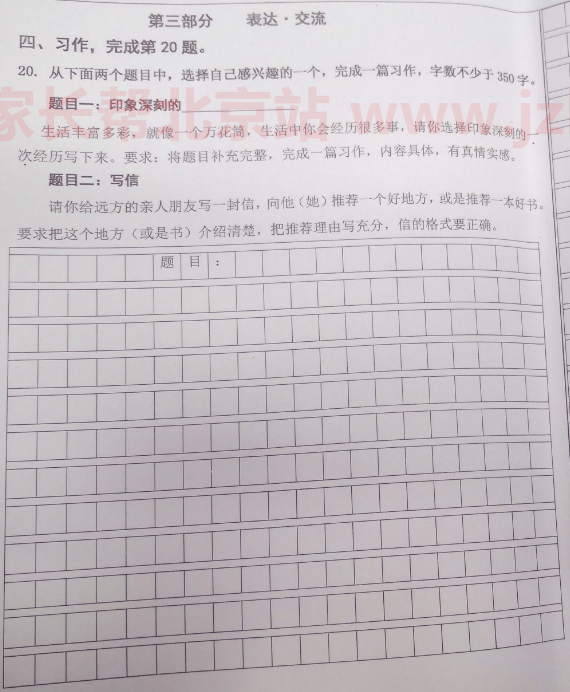 第三部分 表达·交流
四、习作，完成第20题。
20. 从下面两个题目中，选择自己感兴趣的一个，完成一篇习作，字数不少于350字。
题目一：印象深刻的
生活丰富多彩，就像一个万花筒，生活中你会经历很多事，请你选择印象深刻的一
次经历写下来。要求：将题目补充完整，完成一篇习作，内容具体，有真情实感。
题目二：写信
请你给远方的亲人朋友写一封信，向他（她）推荐一个好地方，或是推荐一本好书。
要求把这个地方（或是书）介绍清楚，把推荐理由写充分，信的格式要正确。
题目：
家长帮北京站 www.jz